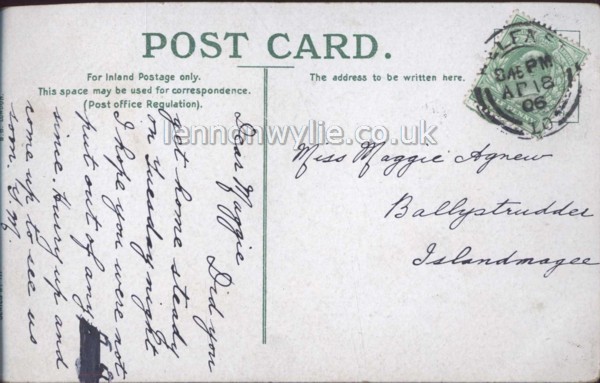 POST CARD.
For Inland Postage only.
This space may be used for correspondence.
(Post office Regulation).
The address to be written here.
lennonwylie.co.uk
LFAST
8.45 PM
AP 18
06
Miss Maggie Agnew
Ballystrudder
Islandmagee
Dear Maggie Did you
get home steady
on Tuesday night
I hope you were not
put out of any
since. Hurry up and
come up to see us
soon.